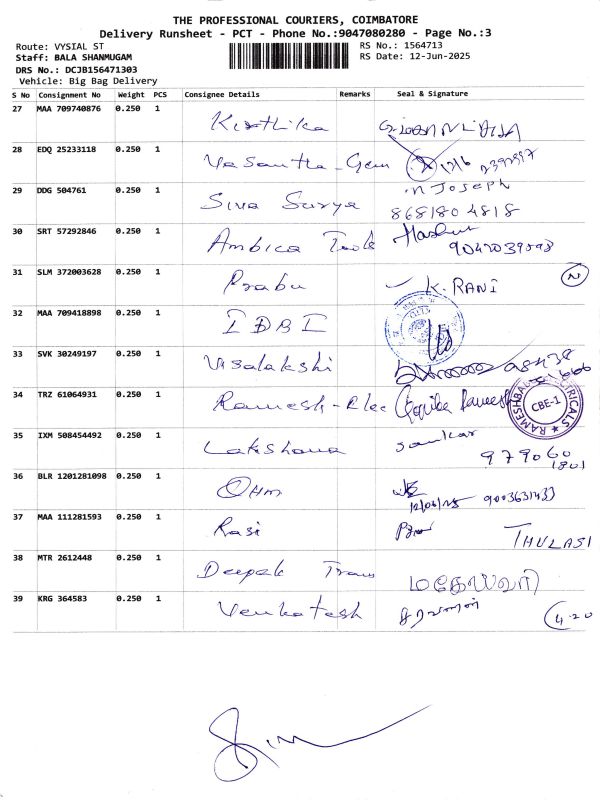 THE PROFESSIONAL COURIERS, COIMBATORE
Delivery Runsheet - PCT - Phone No.:9047080280 - Page No.:3
Route: VYSIAL ST
RS No.: 1564713
Staff: BALA SHANMUGAM
RS Date: 12-Jun-2025
DRS No.: DCJB156471303
Vehicle: Big Bag Delivery
S No Consignment No Weight PCS Consignee Details Remarks Seal & Signature
27 MAA 709740876 0.250 1 Kirthika
28 EDQ 25233118 0.250 1 Vasantha - Gem 12/6
29 DDG 504761 0.250 1 Siva Surya N Joseph
8681804818
30 SRT 57292846 0.250 1 Ambica Tools
31 SLM 372003628 0.250 1 Prabu K. RANI N
32 MAA 709418898 0.250 1 IDBI
33 SVK 30249197 0.250 1 Visalakshi
34 TRZ 61064931 0.250 1 Ramesh - Elec Ramesh CBE-1
35 IXM 508454492 0.250 1 Lakshana Sankar
979060
1801
36 BLR 1201281098 0.250 1 Ohm
12/06/25 9003631433
37 MAA 111281593 0.250 1 Rasi THULASI
38 MTR 2612448 0.250 1 Deepak Trans மகேஸ்வரி
39 KRG 364583 0.250 1 Venkatesh சரவணன் 4.20